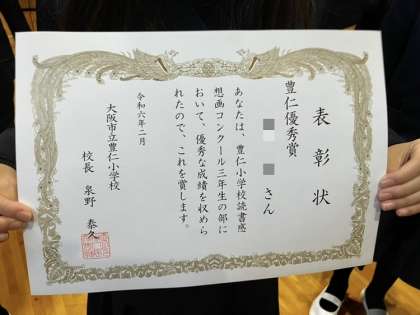 表彰状
豊仁優秀賞
さん
あなたは、豊仁小学校読書感
想画コンクール三年生の部に
おいて、優秀な成績を収めら
れたので、これを賞します。
令和六年二月
大阪市立豊仁小学校
校長 泉野 泰久